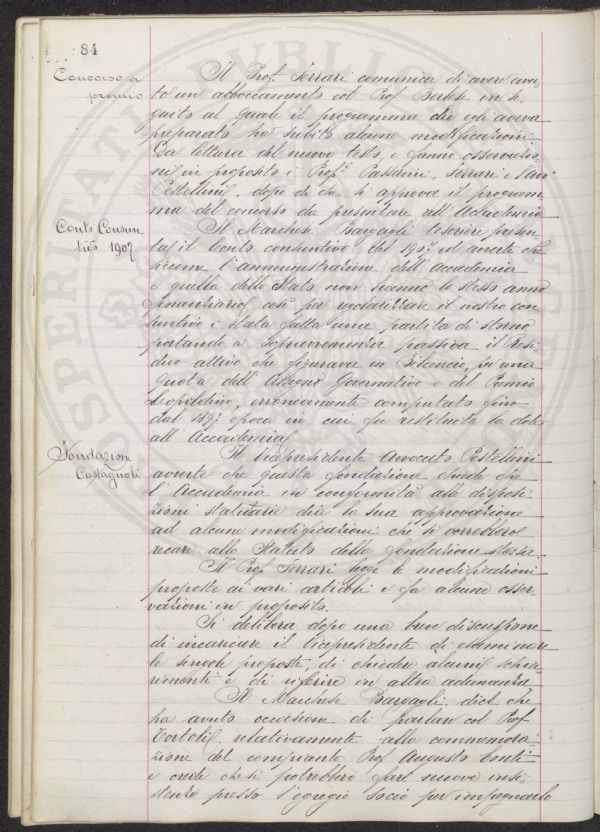 84
Concorso a
premio
Il Prof. Ferrari comunica di avere avu-
to un abboccamento col Prof. Berlese in se-
guito al quale il programma che egli aveva
preparato ha subito alcune modificazioni.
Dà lettura del nuovo testo, e fanno osservazio-
ni in proposito i Prof.ri Passerini, Ferrari e l'Avv.
Pestellini, dopo di che si approva il program-
ma del concorso da presentare all'Accademia
Conto Consun-
tivo 1907
Il Marchese Bargagli tesoriere presen-
ta il Conto consuntivo del 1907 ed avverte che
siccome l'amministrazione dell'accademia
e quella dello Stato non hanno lo stesso anno
finanziario, così per regolarizzare il nostro con-
suntivo è stata fatta una partita di storno
portando a Sopravvenienza passiva il Resi-
duo attivo che figurava in Bilancio, per una
quota dell'Assegno Governativo e del Premio
Leopoldino, erroneamente computato fino
dal 1897 epoca in cui fu restituita la dote
all'Accademia
Fondazione
Castagnoli
Il Vicepresidente Avvocato Pestellini
avverte che questa fondazione chiede che
l'Accademia in conformità alle disposi-
zioni statutarie dia la sua approvazione
ad alcune modificazioni che si vorrebbero
recare allo Statuto della fondazione stessa.
Il Prof. Ferrari legge le modificazioni
proposte ai vari articoli e fa alcune osser-
vazioni in proposito.
Si delibera dopo una breve discussione
di incaricare il Vicepresidente di esaminare
le singole proposte, di chiedere alcuni schia-
rimenti e di riferire in altra adunanza
Il Marchese Bargagli, dice che
ha avuto occasione di parlare col Prof.
relativamente alla commemora-
zione del compianto Prof. Augusto Conti
e crede che si potrebbero fare nuove insi-
stenze presso l'egregio socio per impegnarlo